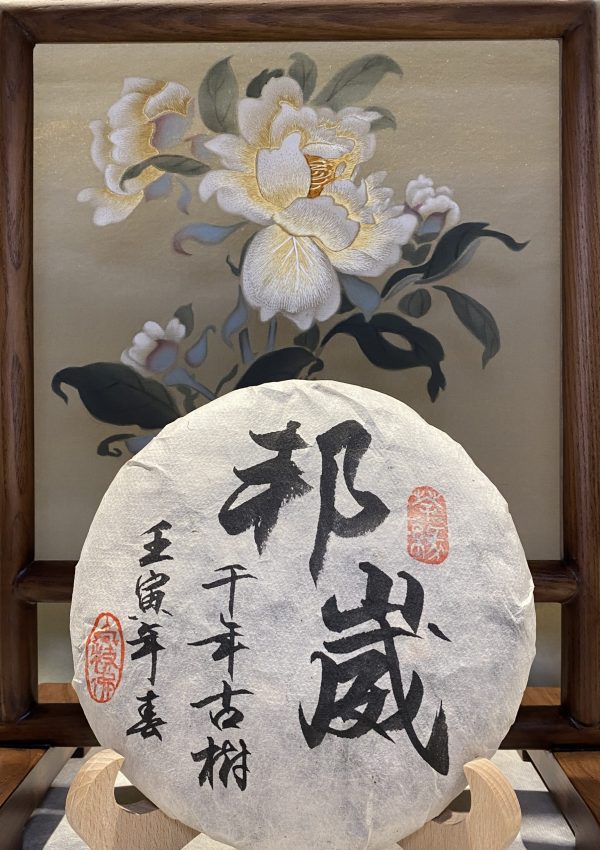 邦崴
千年古樹
壬寅年春